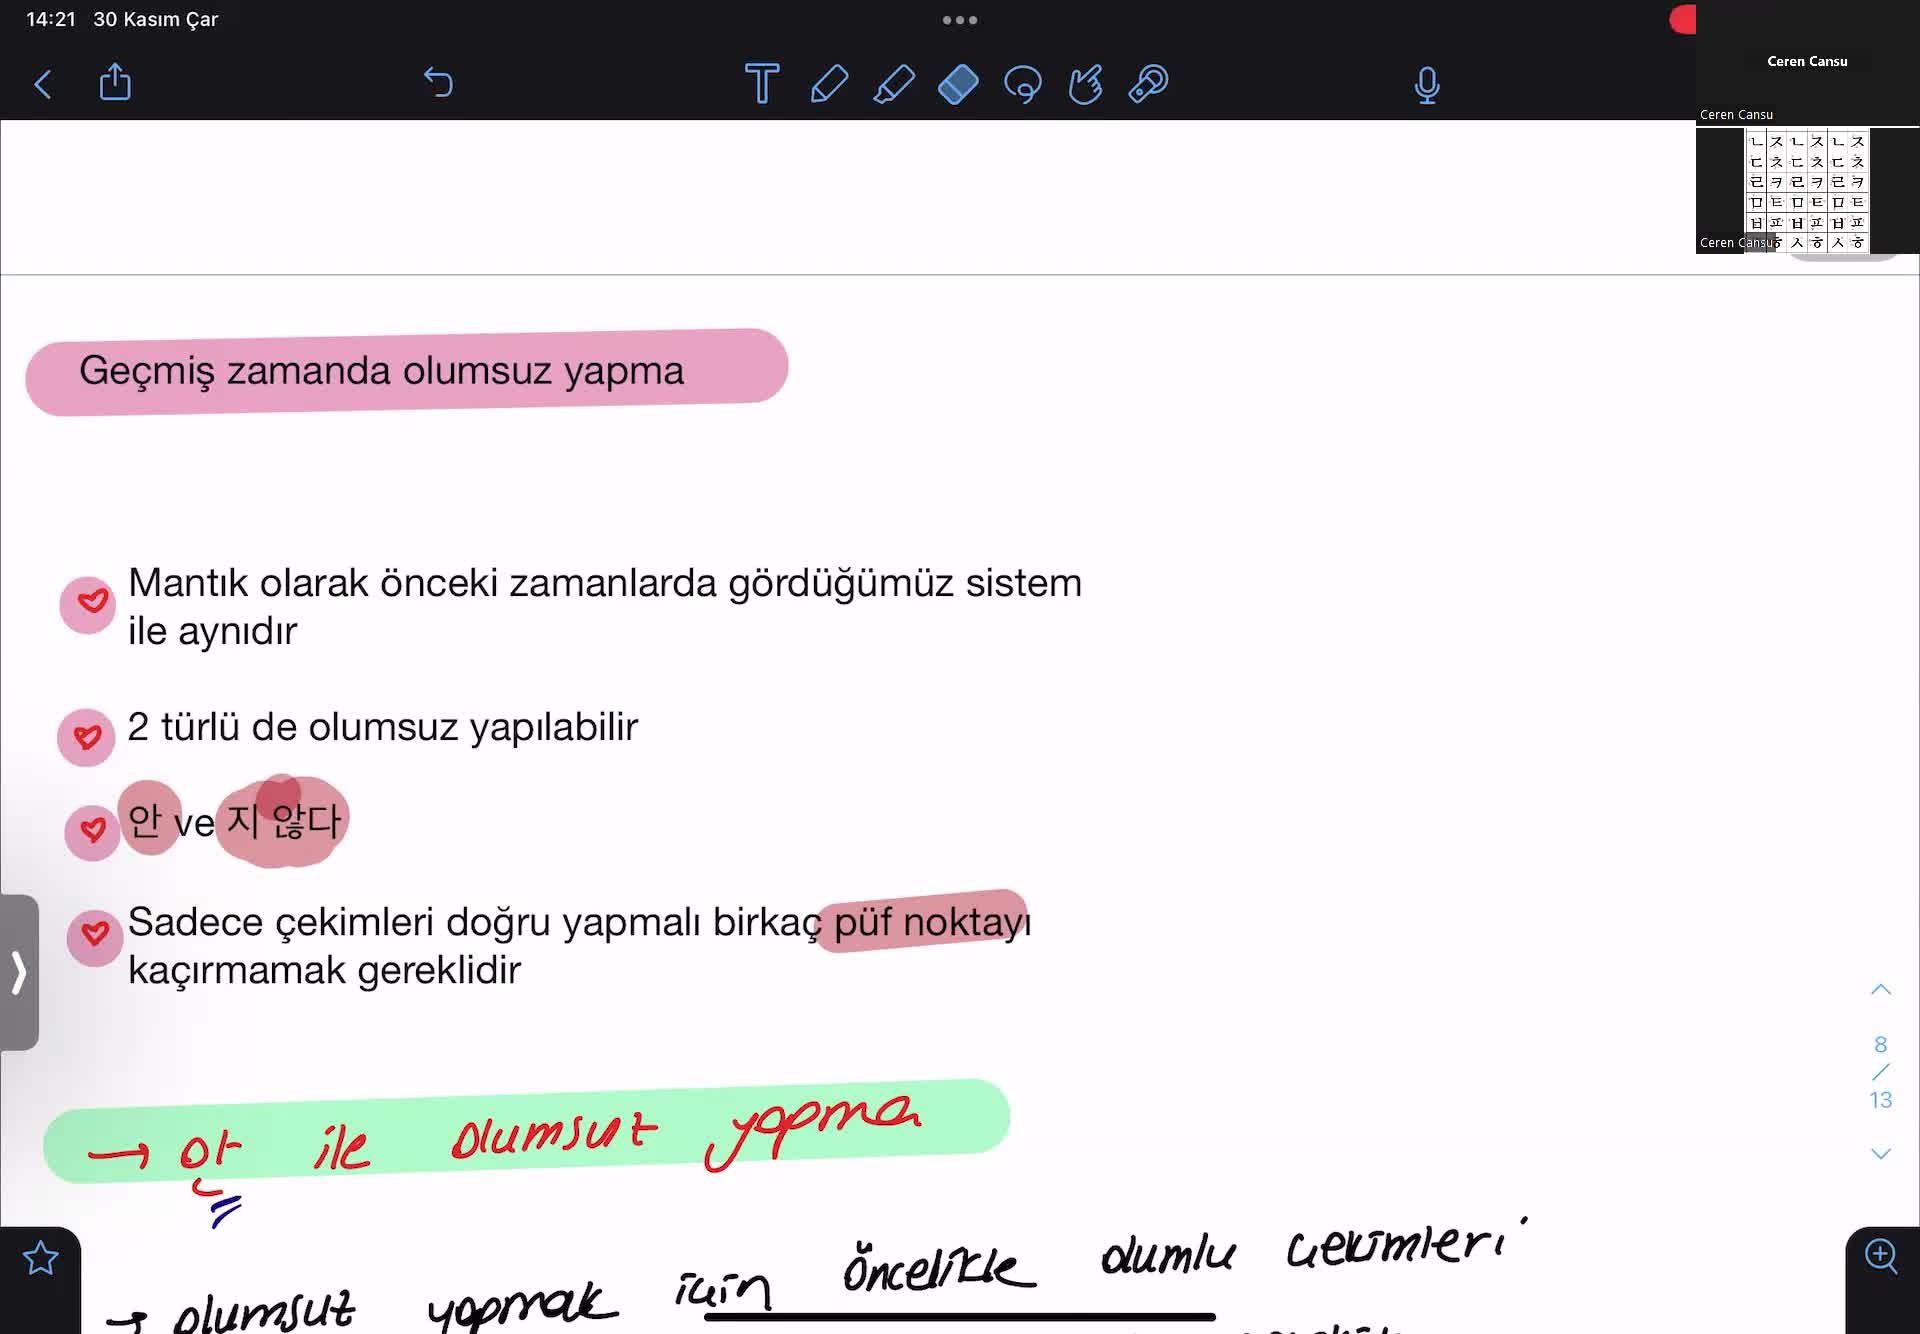 14:21 30 Kasım Çar
Ceren Cansu
Ceren Cansu
ㄴ ㅈ ㄴ ㅈ ㄴ ㅈ
ㄷ ㅊ ㄷ ㅊ ㄷ ㅊ
ㄹ ㅋ ㄹ ㅋ ㄹ ㅋ
ㅁ ㅌ ㅁ ㅌ ㅁ ㅌ
ㅂ ㅍ ㅂ ㅍ ㅂ ㅍ
Ceren Cansu ㅎ ㅅ ㅎ ㅅ ㅎ
Geçmiş zamanda olumsuz yapma
Mantık olarak önceki zamanlarda gördüğümüz sistem
ile aynıdır
2 türlü de olumsuz yapılabilir
안 ve 지 않다
Sadece çekimleri doğru yapmalı birkaç püf noktayı
kaçırmamak gereklidir
8
/
13
→ 안 ile olumsuz yapma
→ olumsuz yapmak için öncelikle olumlu çekimleri